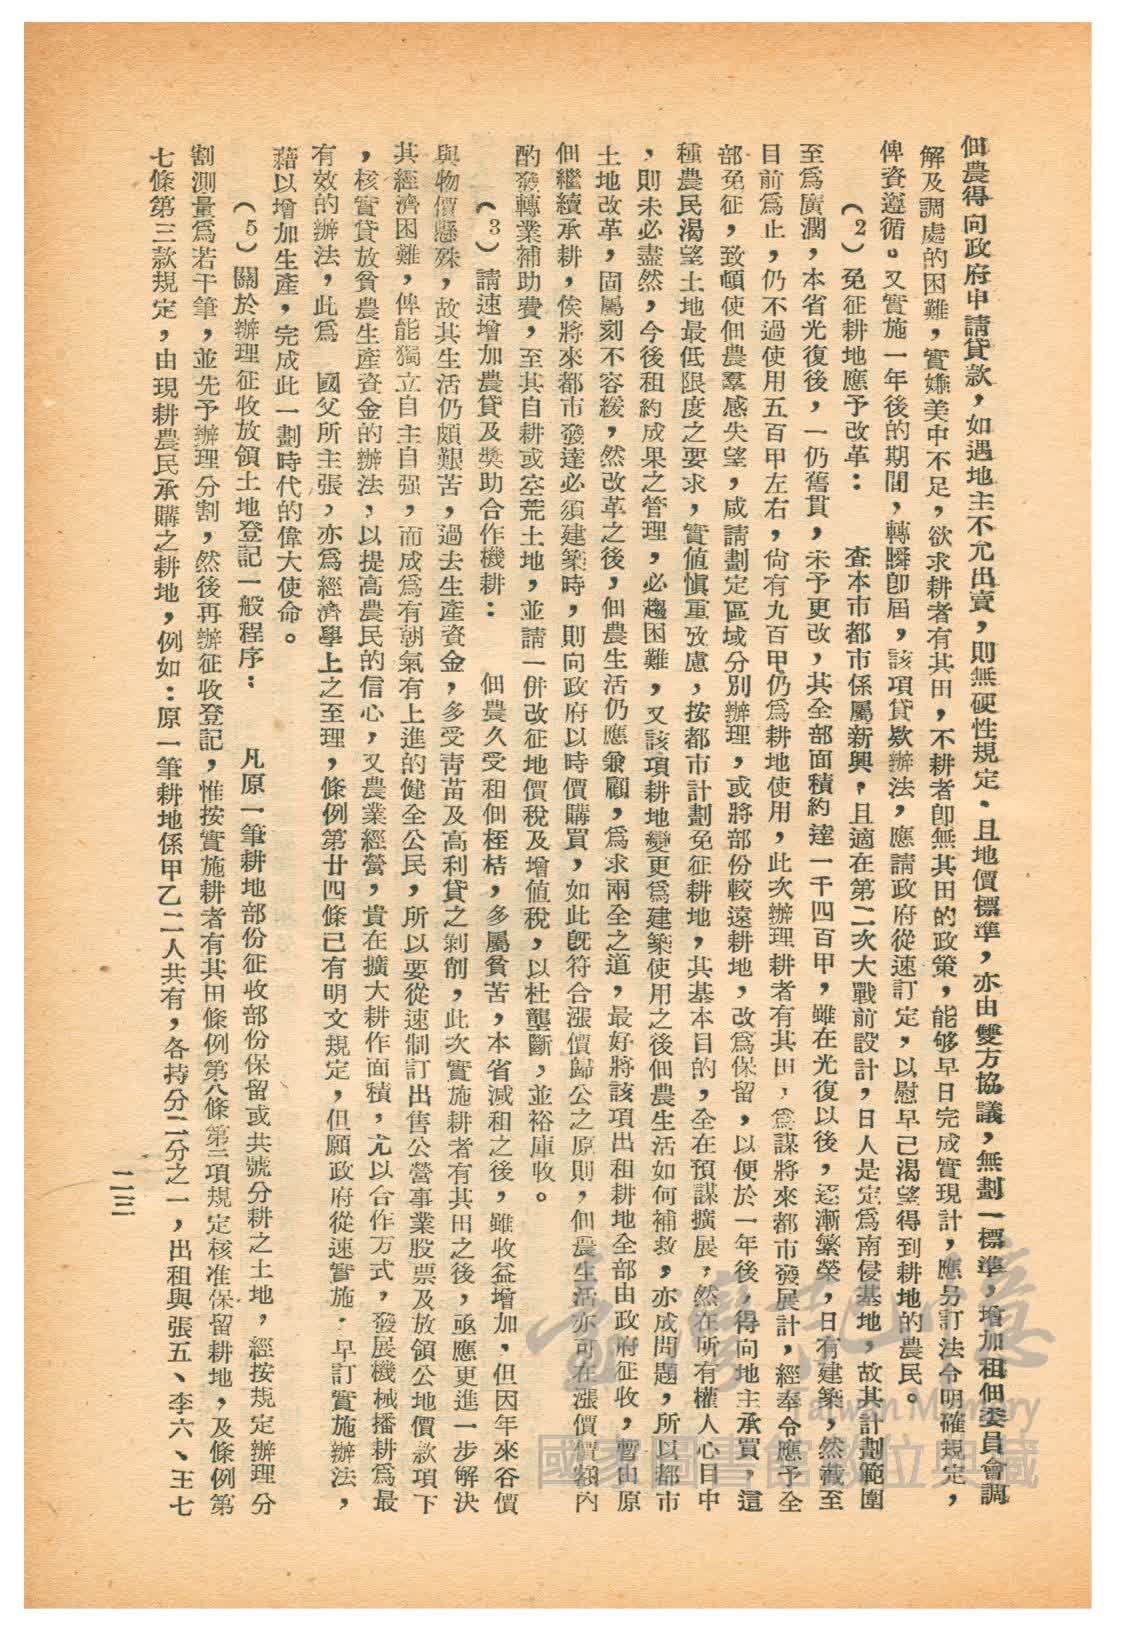 佃農得向政府申請貸款，如遇地主不允出賣，則無硬性規定、且地價標準，亦由雙方協議，無劃一標準，增加租佃委員會調
解及調處的困難，實嫌美中不足，欲求耕者有其田，不耕者卽無其田的政策，能够早日完成實現計，應另訂法令明確規定，
俾資遵循。又實施一年後的期間，轉瞬卽屆，該項貸欵辦法，應請政府從速訂定，以慰早已渴望得到耕地的農民。
（2）免征耕地應予改革：　查本市都市係屬新興，且適在第二次大戰前設計，日人是定爲南侵基地，故其計劃範圍
至爲廣濶，本省光復後，一仍舊貫，未予更改，其全部面積約達一千四百甲，雖在光復以後，逐漸繁榮，日有建築，然截至
目前爲止，仍不過使用五百甲左右，尙有九百甲仍爲耕地使用，此次辦理耕者有其田，爲謀將來都市發展計，經奉令應予全
部免征，致頓使佃農羣感失望，咸請劃定區域分別辦理，或將部份較遠耕地，改爲保留，以便於一年後，得向地主承買，這
種農民渴望土地最低限度之要求，實値愼重攷慮，按都市計劃免征耕地，其基本目的，全在預謀擴展，然在所有權人心目中
，則未必盡然，今後租約成果之管理，必趨困難，又該項耕地變更爲建築使用之後佃農生活如何補救，亦成問題，所以都市
土地改革，固屬刻不容緩，然改革之後，佃農生活仍應兼顧，爲求兩全之道，最好將該項出租耕地全部由政府征收，暫由原
佃繼續承耕，俟將來都市發達必須建築時，則向政府以時價購買，如此旣符合漲價歸公之原則，佃農生活亦可在漲價價額內
酌發轉業補助費，至其自耕或空荒土地，並請一併改征地價稅及增値稅，以杜壟斷，並裕庫收。
（3）請速增加農貸及奬助合作機耕：　佃農久受租佃桎梏，多屬貧苦，本省減租之後，雖收益增加，但因年來谷價
與物價懸殊，故其生活仍頗艱苦，過去生產資金，多受靑苗及高利貸之剝削，此次實施耕者有其田之後，亟應更進一步解決
其經濟困難，俾能獨立自主自强，而成爲有朝氣有上進的健全公民，所以要從速制訂出售公營事業股票及放領公地價款項下
，核實貸放貧農生產資金的辦法，以提高農民的信心，又農業經營，貴在擴大耕作面積，尤以合作方式，發展機械播耕爲最
有效的辦法，此爲　國父所主張，亦爲經濟學上之至理，條例第廿四條已有明文規定，但願政府從速實施、早訂實施辦法，
藉以增加生產，完成此一劃時代的偉大使命。
（5）關於辦理征收放領土地登記一般程序：　凡原一筆耕地部份征收部份保留或共號分耕之土地，經按規定辦理分
割測量爲若干筆，並先予辦理分割，然後再辦征收登記，惟按實施耕者有其田條例第八條第三項規定核准保留耕地，及條例第
七條第三款規定，由現耕農民承購之耕地，例如：原一筆耕地係甲乙二人共有，各持分二分之一，出租與張五、李六、王七
二三
臺灣記憶
Taiwan Memory
國家圖書館數位典藏